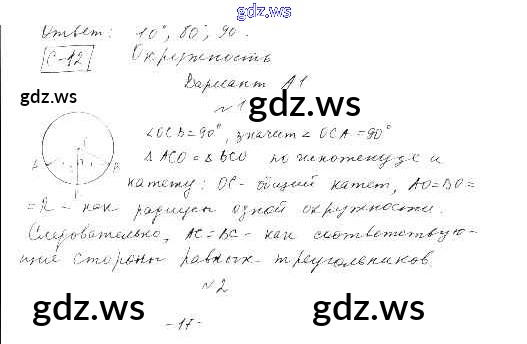 gdz.ws
Ответ: 10°, 80°, 90°.
С-12 Окружность
gdz.ws
Вариант А1
gdz.ws
№1
∠OCB=90°, значит ∠OCA=90°
△ACO=△BCO по гипотенузе и
катету: OC - общий катет, AO=BO=
=R - как радиусы одной окружности.
Следовательно, AC=BC - как соответствую-
щие стороны равных треугольников.
№2
gdz.ws
gdz.ws
-17-